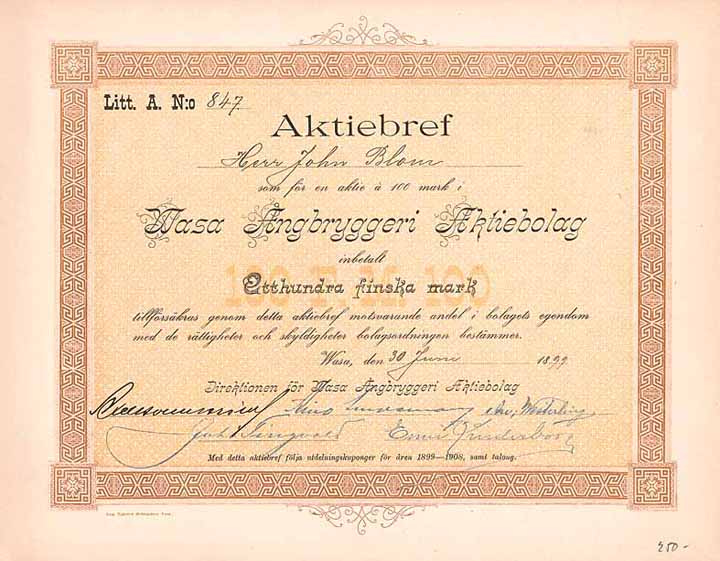 Litt. A. N:o 847
Aktiebref
Herr John Blom
som för en aktie à 100 mark i
Wasa Ångbryggeri Aktiebolag
inbetalt
100 F. M. 100
Etthundra finska mark
tillförsäkras genom detta aktiebref motsvarande andel i bolagets egendom
med de rättigheter och skyldigheter bolagsordningen bestämmer.
Wasa, den 30 Juni 1899
Direktionen för Wasa Ångbryggeri Aktiebolag
Med detta aktiebref följa utdelningskuponger för åren 1899—1908, samt talong.
250-